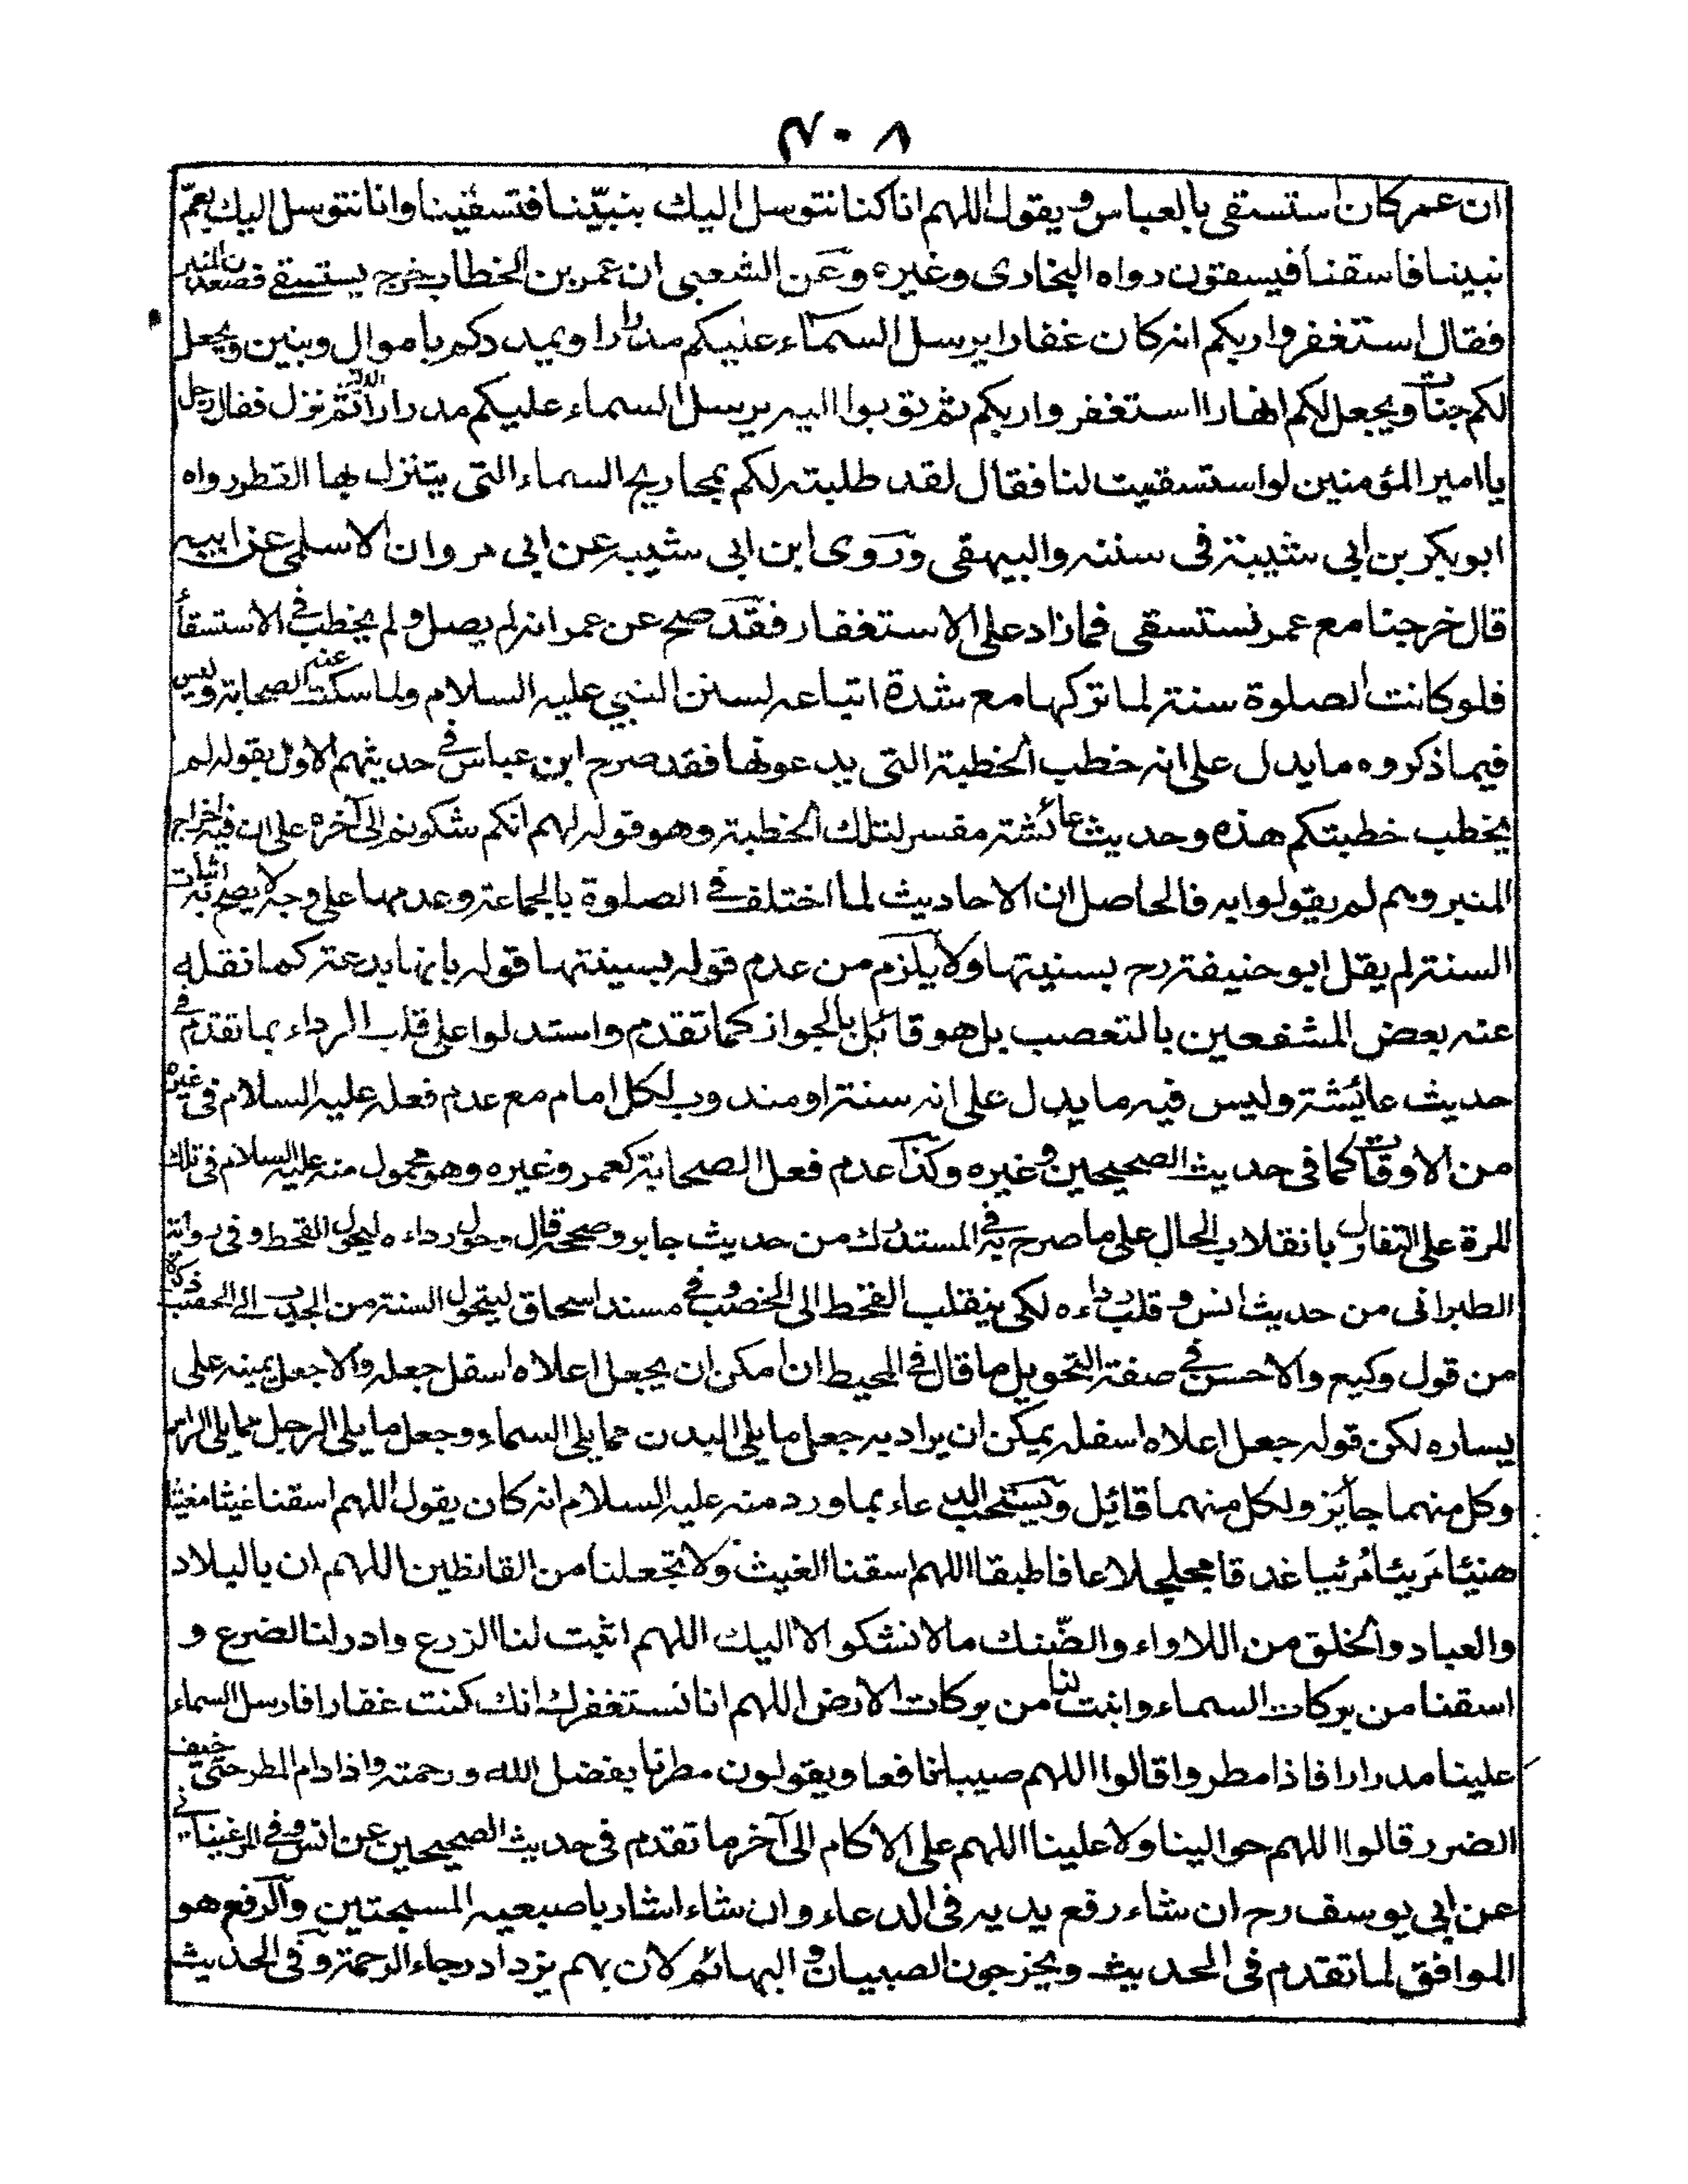 ٤٠٨
ان عمر كان استسقى بالعباس ويقول اللهم انا كنا نتوسل اليك بنبيّنا فتسقينا وانا نتوسل اليك بعمّ
نبينا فاسقنا فيسقون رواه البخارى وغيره وعن الشعبى ان عمر بن الخطاب خرج يستسقى فصعد المنبر
فقال استغفروا ربكم انه كان غفارا يرسل السماء عليكم مدرارا ويمددكم باموال وبنين ويجعل
لكم جنات ويجعل لكم انهارا استغفروا ربكم ثم توبوا اليه يرسل السماء عليكم مدرارا ثم نزل فقال رجل
يا امير المؤمنين لو استسقيت لنا فقال لقد طلبته لكم بمجاريح السماء التى يتنزل بها القطر رواه
ابو بكر بن ابى شيبة فى سننه والبيهقى وروى ابن ابى شيبه عن ابى مروان الاسلمى عن ابيه
قال خرجنا مع عمر نستسقى فما زاد على الاستغفار فقد صح عن عمر انه لم يصل ولم يخطب فى الاستسقاء
فلو كانت الصلوة سنة لما تركها مع شدة اتباعه لسنن النبي عليه السلام ولما سكت عنه الصحابة وليس
فيما ذكروه ما يدل على انه خطب الخطبة التى يدعونها فقد صرح ابن عباس فى حديثهم الاول بقوله لم
يخطب خطبتكم هذه وحديث عائشة مفسر لتلك الخطبة وهو قوله لهم انكم شكوتم الى آخره على ان فيه اخراج
المنبر وهم لم يقولوا به فالحاصل ان الاحاديث لما اختلف فى الصلوة بالجماعة وعدمها على وجه لا يصح به اثبات
السنة لم يقل ابو حنيفة رح بسنيتها ولا يلزم من عدم قوله بسنيتها قوله بانها بدعة كما نقله
عنه بعض المشفعين بالتعصب بل هو قائل بالجواز كما تقدم واستدلوا على قلب الرداء بما تقدم فى
حديث عائشة وليس فيه ما يدل على انه سنة او مندوب لكل امام مع عدم فعله عليه السلام فى غيره
من الاوقات كما فى حديث الصحيحين وغيره وكذا عدم فعل الصحابة كعمر وغيره وهو محمول منه عليه السلام فى تلك
المرة على التفاول بانقلاب الحال على ما صرح به فى المستدرك من حديث جابر وصححه قال حول رداءه ليحول القحط وفى رواية
الطبرانى من حديث انس وقلب رداءه لكى ينقلب القحط الى الخصب وفى مسند اسحاق ليتحول السنة من الجدب الى الخصب ذكره
من قول وكيع والاحسن فى صفة التحويل ما قال فى المحيط ان امكن ان يجعل اعلاه اسفل جعله والا جعل يمينه على
يساره لكن قوله جعل اعلاه اسفله يمكن ان يراد به جعل ما يلى البدن مما يلى السماء وجعل ما يلى الرجل مما يلى الراس
وكل منهما جائز ولكل منهما قائل ويستحب الدعاء بما ورد منه عليه السلام انه كان يقول اللهم اسقنا غيثا مغيثا
هنيئا مَريئا مُرئيا غدقا مجللا عافا طبقا اللهم اسقنا الغيث ولا تجعلنا من القانطين اللهم ان بالبلاد
والعباد والخلق من اللاواء والضّنك ما لا نشكو الا اليك اللهم انبت لنا الزرع وادر لنا الضرع و
اسقنا من بركات السماء وانبت لنا من بركات الارض اللهم انا نستغفرك انك كنت غفارا فارسل السماء
علينا مدرارا فاذا مطروا قالوا اللهم صيبا نافعا ويقولون مطرنا بفضل الله ورحمته واذا دام المطر حتى خيف
الضرر قالوا اللهم حوالينا ولا علينا اللهم على الاكام الى آخر ما تقدم فى حديث الصحيحين عن انس وفى المرغينانى
عن ابى يوسف رح ان شاء رفع يديه فى الدعاء وان شاء اشار باصبعيه المسبحتين والرفع هو
الموافق لما تقدم فى الحديث ويخرجون الصبيان والبهائم لان بهم يزداد رجاء الرحمة وفى الحديث